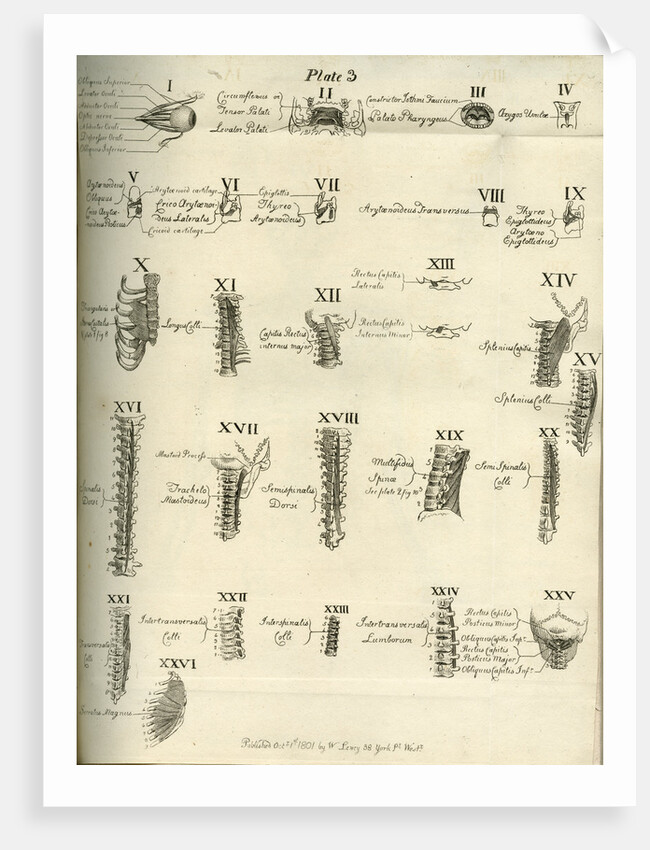 Plate 3
I
Obliquus Superior
Levator Oculi
Adductor Oculi
Optic nerve
Abductor Oculi
Depressor Oculi
Obliquus Inferior
II
Circumflexus or
Tensor Palati
Levator Palati
III
Constrictor Isthmi Faucium
Palato Pharyngeus
IV
Azygos Uvulæ
V
Arytænoideus
Obliquus
Crico Arytæ-
noideus Posticus
VI
Arytænoid cartilage
Crico Arytænoi-
deus Lateralis
Cricoid cartilage
VII
Epiglottis
Thyreo
Arytænoideus
VIII
Arytænoideus Transversus
IX
Thyreo
Epiglottideus
Arytæno
Epiglottideus
X
Triangularis or
XI
Longus Colli
XII
Capitis Rectus
internus major
XIII
Rectus Capitis
Lateralis
Rectus Capitis
Internus Minor
XIV
Splenius Capitis
XV
Splenius Colli
XVI
Spinalis
Dorsi
XVII
Mastoid Process
Trachelo
Mastoideus
XVIII
Semispinalis
Dorsi
XIX
Multifidus
Spinæ
See plate 2 fig 10
XX
Semi Spinalis
Colli
XXI
Transversalis
Colli
XXII
Intertransversalis
Colli
XXIII
Interspinalis
Colli
XXIV
Intertransversalis
Lumborum
XXV
Rectus Capitis
Posticus Minor
Obliquus Capitis Supr
Rectus Capitis
Posticus Major
Obliquus Capitis Infr
XXVI
Serratus Magnus
Published Octr 1st 1801 by W Lewry 38 York St Westr